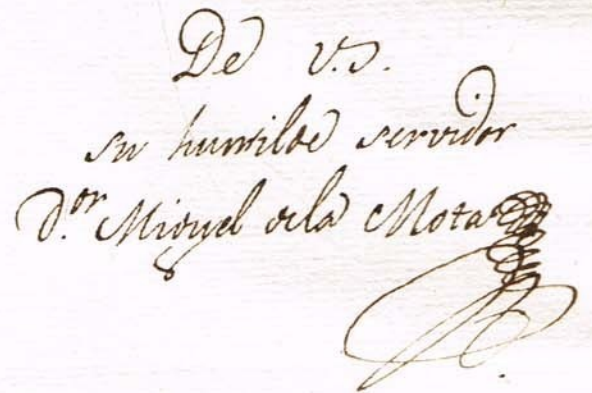 De V.S.
su humilde servidor
D.or Miguel dela Mota